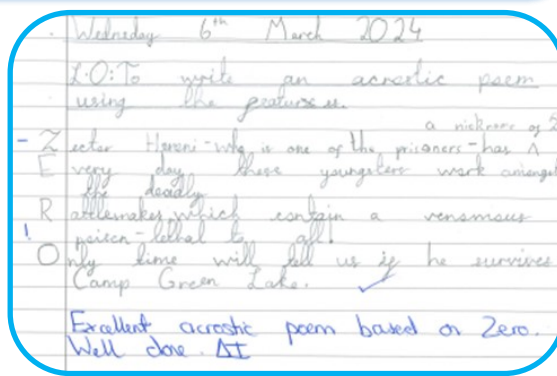 Wednesday 6th March 2024
L.O: To write an acrostic poem
using the features.
a nickname of Z
- Zecter Heroni - who is one of the prisoners - has ^
Every day these youngsters work amongst
the deadly
Rattlesnakes, which contain a venomous
! poison - lethal to all!
Only time will tell us if he survives
Camp Green Lake.
Excellent acrostic poem based on Zero.
Well done. ΔI